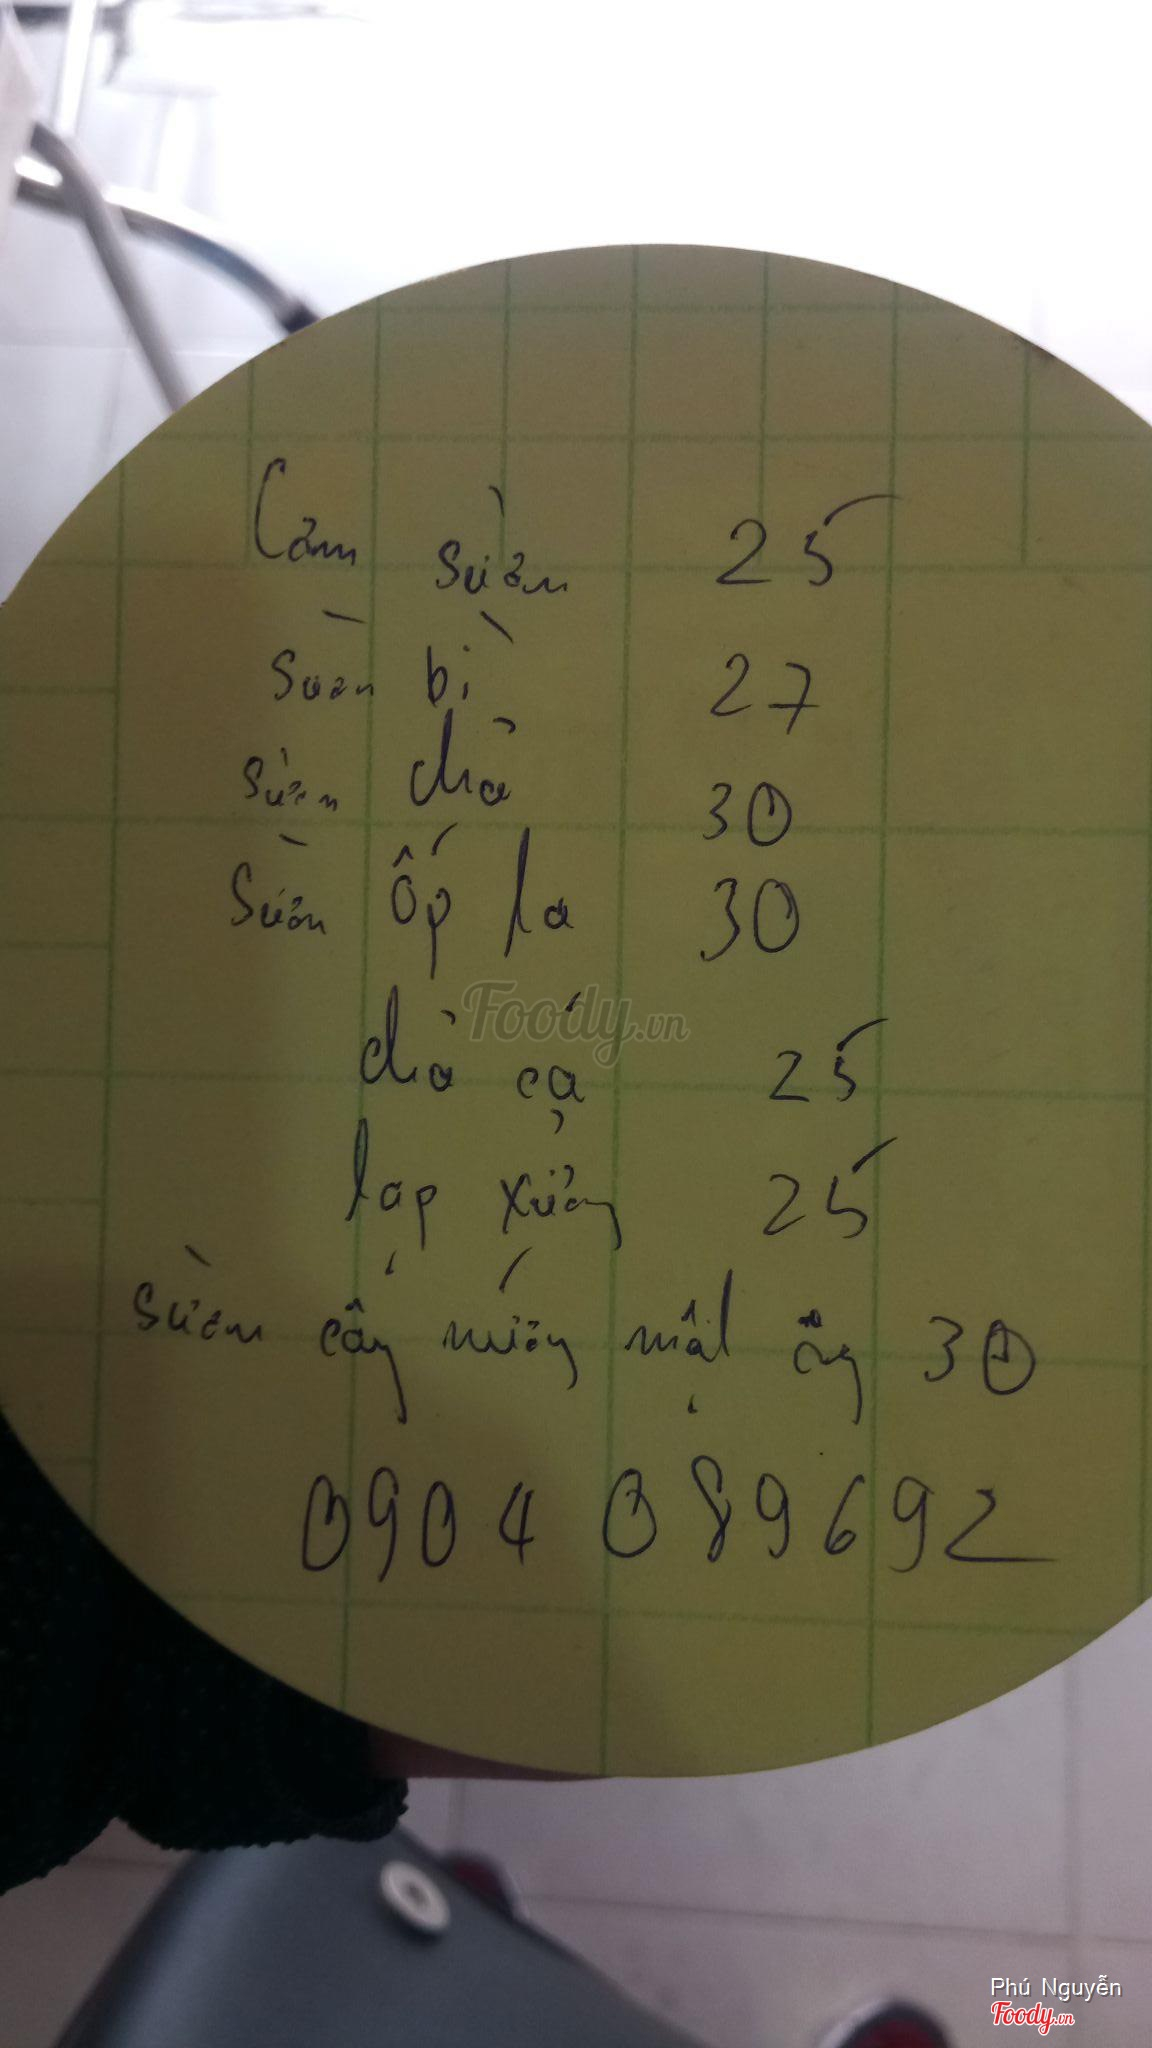 Cơm sườn 25
Sườn bì 27
Sườn chả 30
Sườn ốp la 30
Foody.vn
chả cá 25
lạp xưởng 25
Sườn cây nướng mật ong 30
0904 089692
Phú Nguyễn
Foody.vn